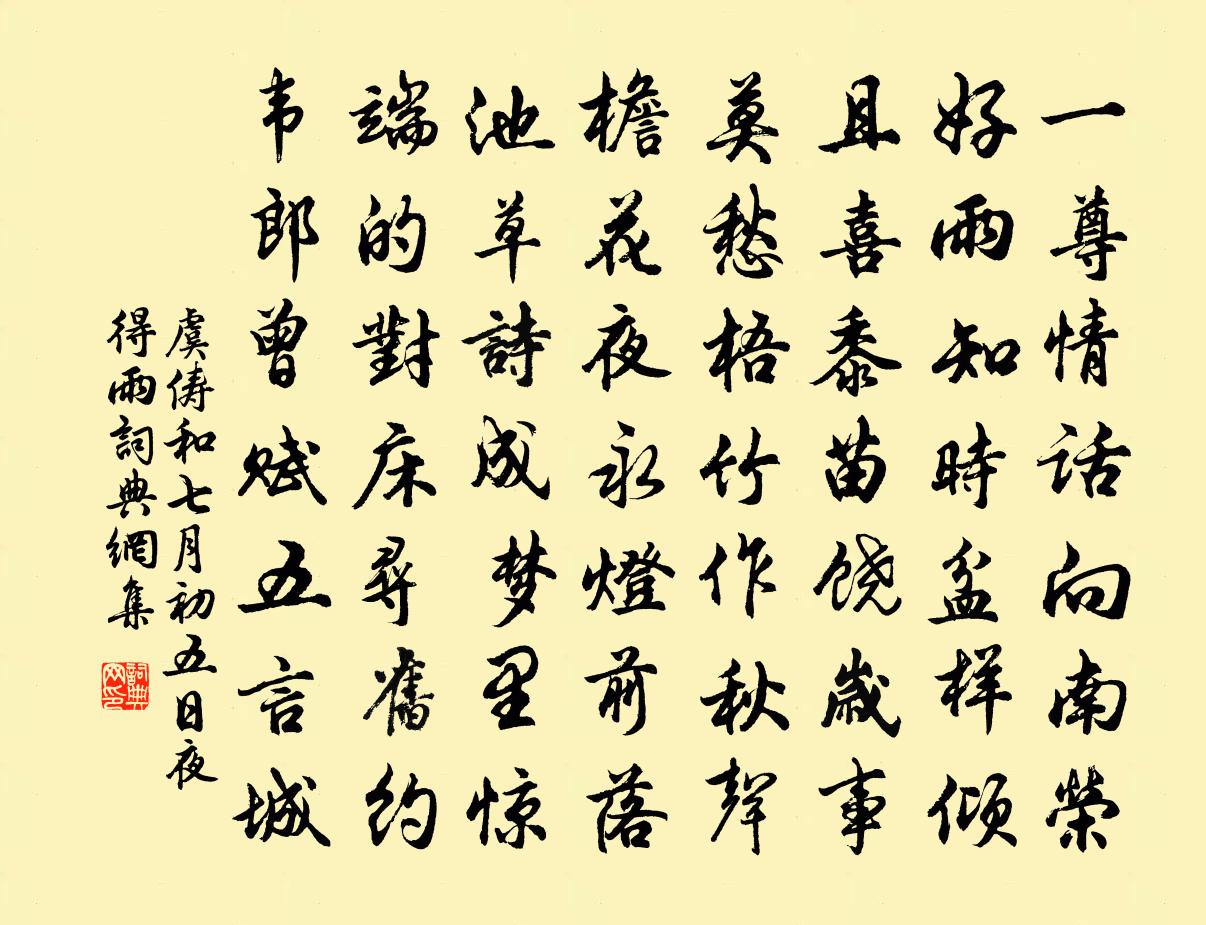 一尊情话向南榮
好雨知時盆样倾
且喜黍苗饶歲事
莫愁梧竹作秋聲
檐花夜永燈前落
池草詩成梦里惊
端的對床尋舊约
韦郎曾赋五言城
虞俦和七月初五日夜
得雨詞典網集
詞典
网印